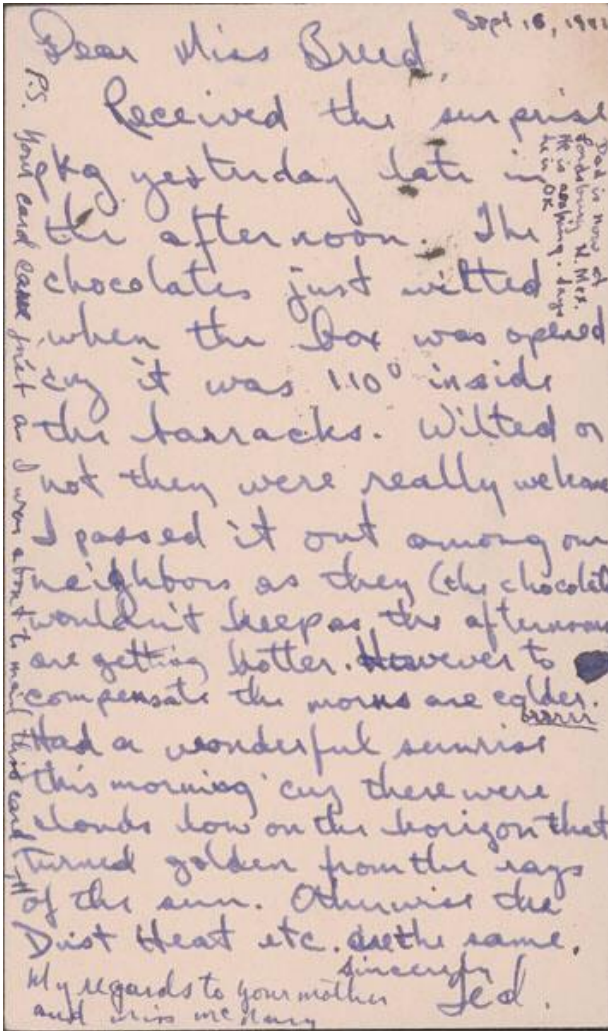 Sept 16, 194
Dear Miss Breed,
Received the surprise
pkg yesterday late in
the afternoon. The
chocolates just wilted
when the box was opened
cuz it was 110° inside
the barracks. Wilted or
not they were really welcome
I passed it out among our
neighbors as they (the chocolates
wouldn't keep as the afternoons
are getting hotter. However to
compensate the morns are colder.
brrrrr
Had a wonderful sunrise
this morning cuz there were
clouds low on the horizon that
turned golden from the rays
of the sun. Otherwise the
Dust Heat etc. are the same.
Sincerely
Ted.
My regards to your mother
and Miss McNary
Dad is now at
Lordsburg N. Mex.
He is OK
P.S. Your card came just as I was about to mail this card